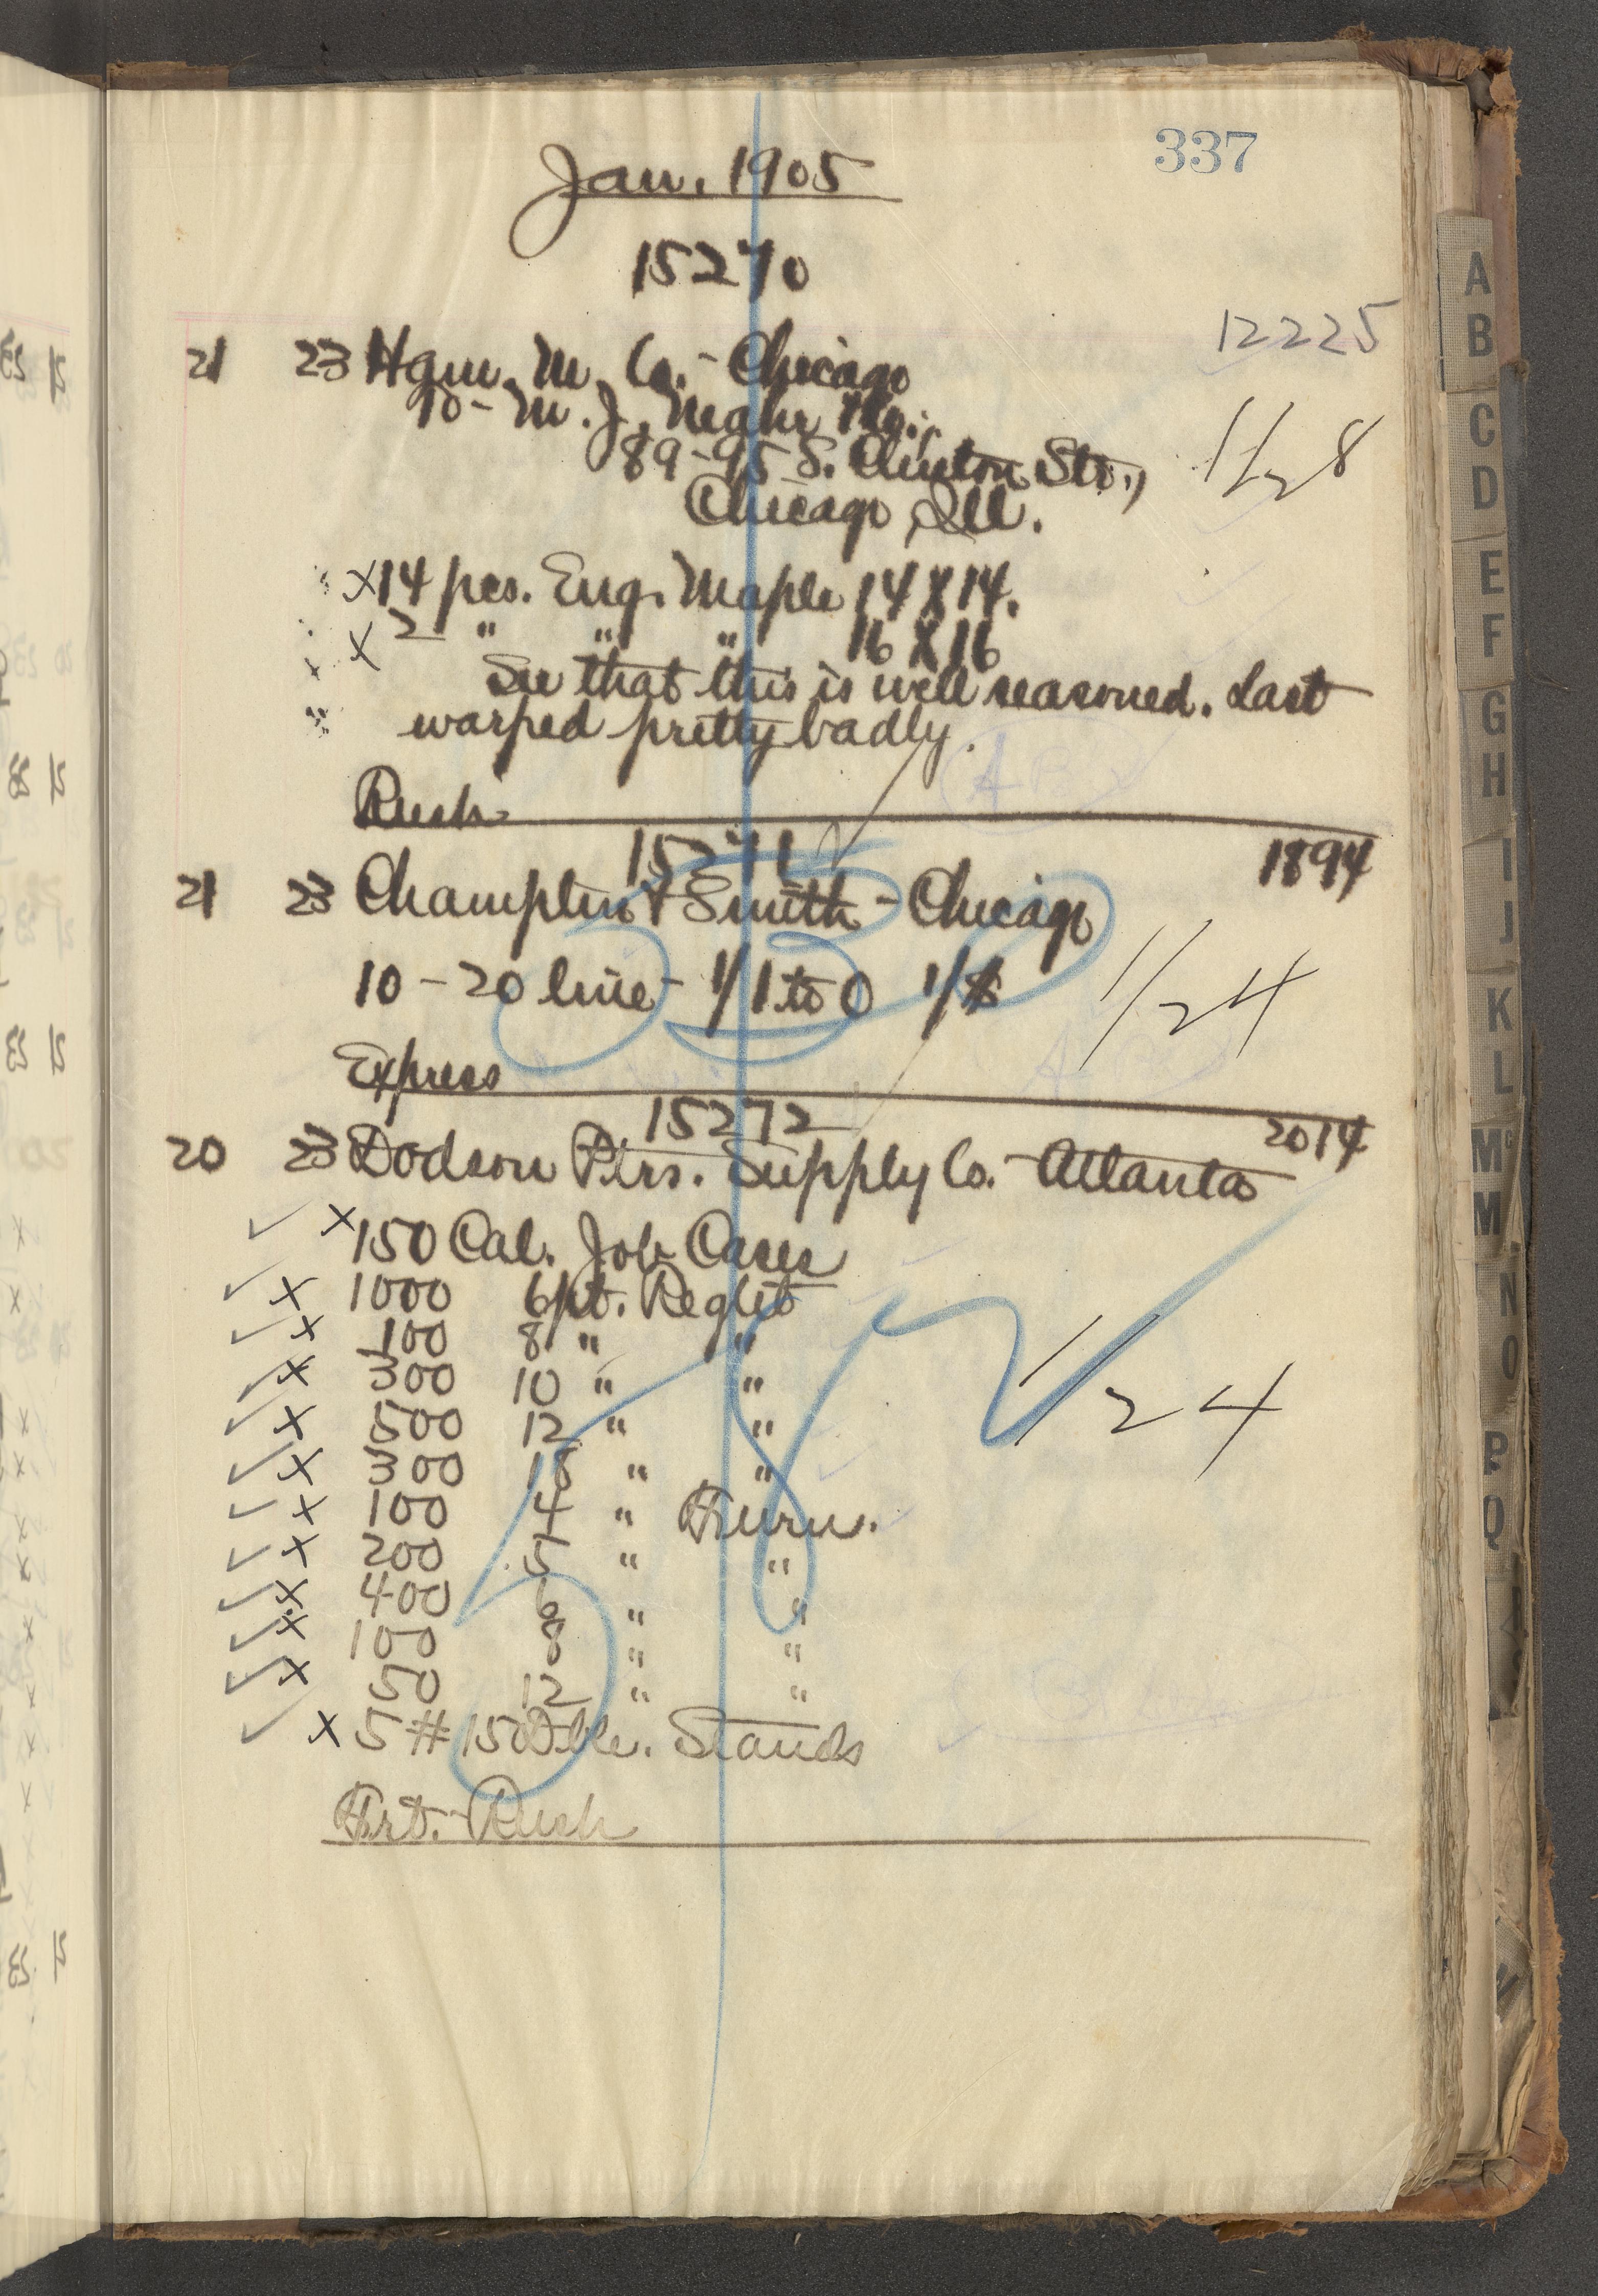 337
Jan. 1905
15270
12225
21 23 Hgm. M. Co. - Chicago
To - M. J.
89-95 S. Clinton Str.,
Chicago, Ill.
1/28
x 14 pcs. Eng. Maple 14 X 14.
x 2 " " " 16 X 16
See that this is well seasoned. Last
warped pretty badly.
Rush
15271 1894
21 23 Champlin & Smith - Chicago
10 - 20 line - 1/1 to 0
1/24
Express
15272 2014
20 23 Dodson Ptrs. Supply Co. - Atlanta
✓ x 150 Cal. Job Cases
✓ x 1000 6 pt. Reglet
✓ x 100 8 " "
✓ x 300 10 " "
1/24
✓ x 500 12 " "
✓ x 300 18 " "
✓ x 100 4 " Furn.
✓ x 200 5 " "
✓ x 400 6 " "
✓ x 100 8 " "
✓ x 50 12 " "
✓ x 5 # 150 Dble. Stands
Frt. Rush
A
B
C
D
E
F
G
H
I
J
K
L
Mc
M
N
O
P
Q